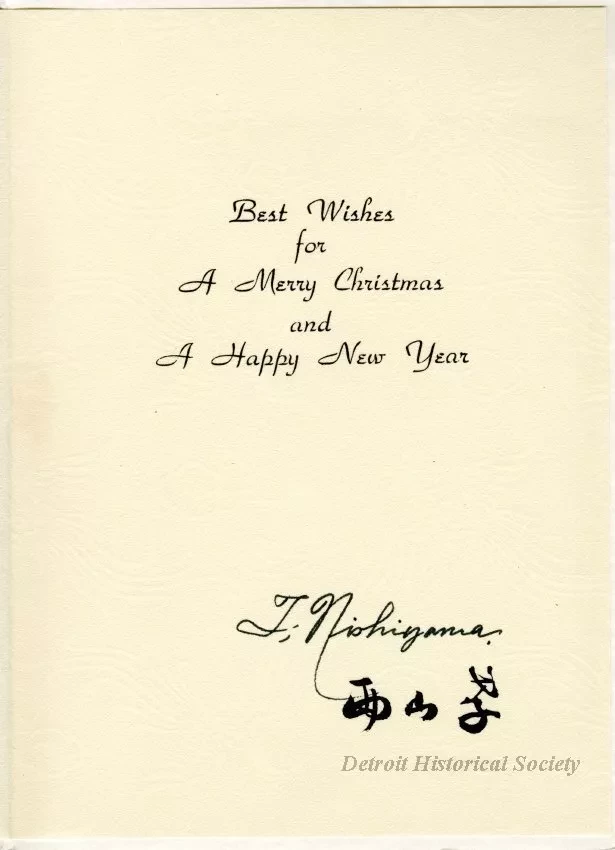 Best Wishes
for
A Merry Christmas
and
A Happy New Year
T. Nishiyama.
西山
Detroit Historical Society